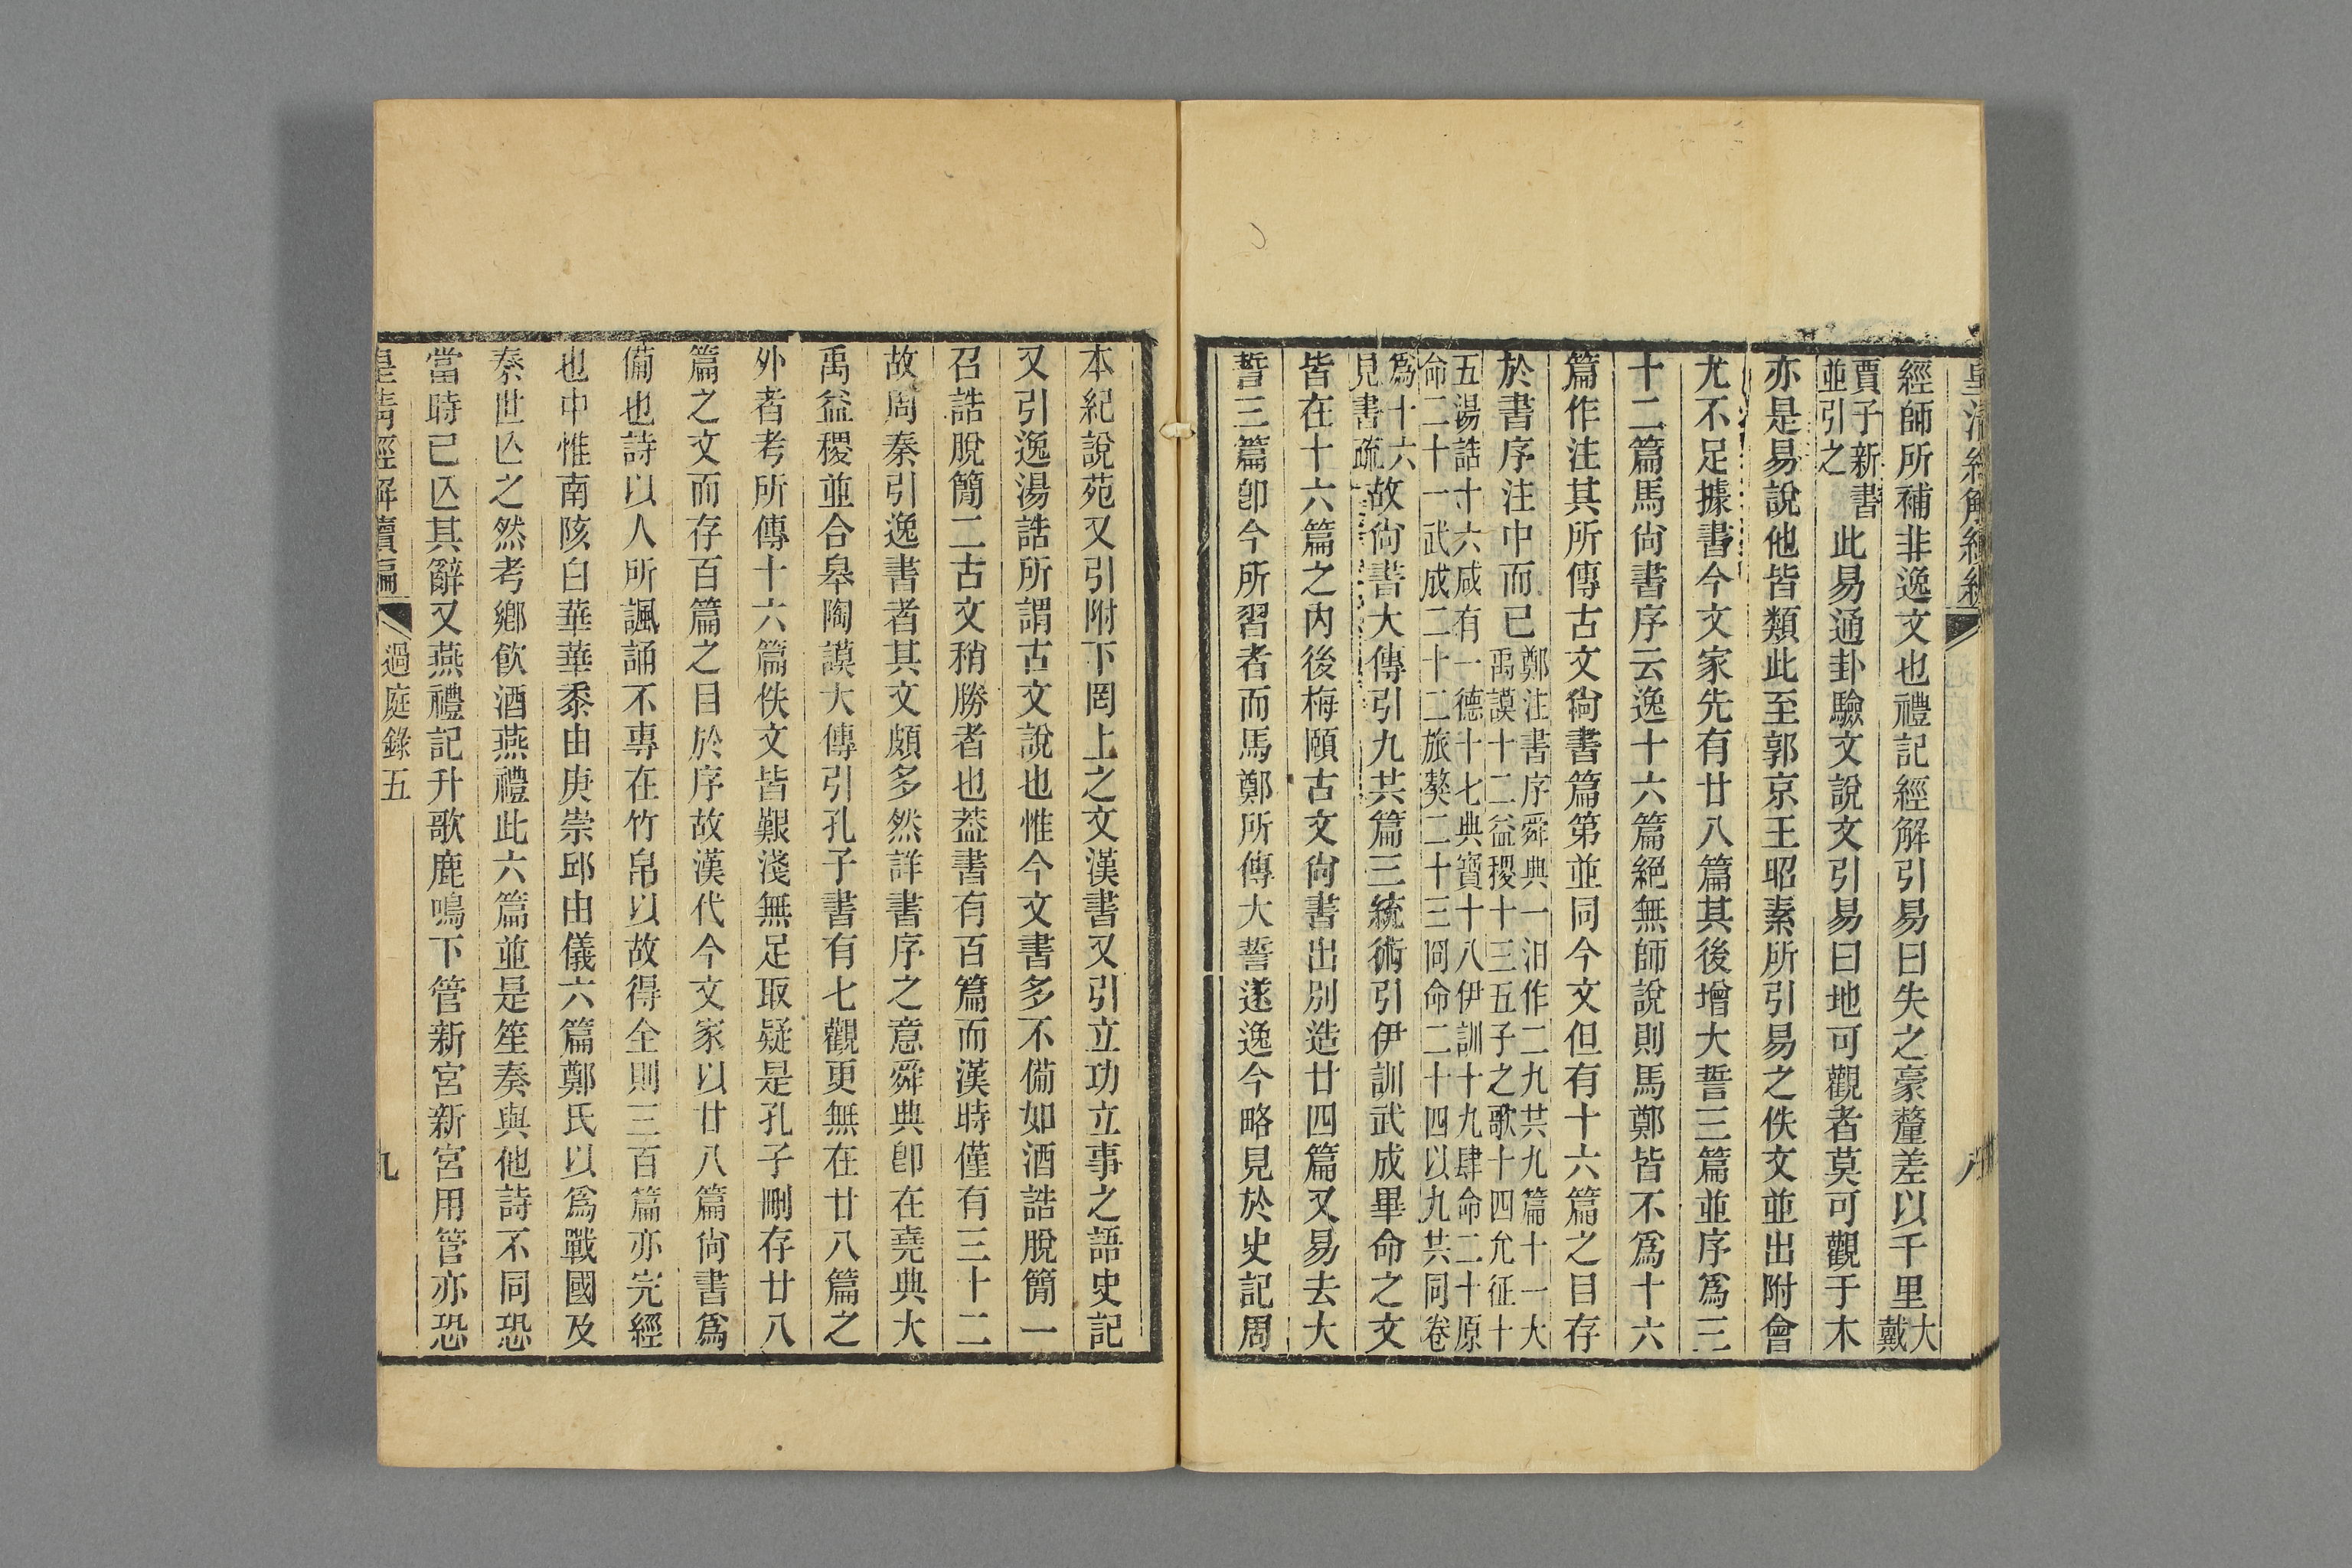 經師所補非逸文也禮記經解引易曰失之豪釐差以千里大戴
賈子新書並引之此易通卦驗文說文引易曰地可觀者莫可觀于木
亦是易說他皆類此至郭京王昭素所引易之佚文並出附會
尤不足據書今文家先有廿八篇其後增大誓三篇並序爲三
十二篇馬尙書序云逸十六篇絕無師說則馬鄭皆不爲十六
篇作注其所傳古文尙書篇第並同今文但有十六篇之目存
於書序注中而已鄭注書序舜典一汨作二九共九篇十一大禹謨十二益稷十三五子之歌十四允征十
五湯誥十六咸有一德十七典寶十八伊訓十九肆命二十原命二十一武成二十二旅獒二十三冏命二十四以九共同卷
爲十六見書疏故尙書大傳引九共篇三統術引伊訓武成畢命之文
皆在十六篇之內後梅頤古文尙書出別造廿四篇又易去大
誓三篇卽今所習者而馬鄭所傳大誓遂逸今略見於史記周
本紀說苑又引附下罔上之文漢書又引立功立事之語史記
又引逸湯誥所謂古文說也惟今文書多不備如酒誥脫簡一
召誥脫簡二古文稍勝者也葢書有百篇而漢時僅有三十二
故周秦引逸書者其文頗多然詳書序之意舜典卽在堯典大
禹益稷並合皋陶謨大傳引孔子書有七觀更無在廿八篇之
外者考所傳十六篇佚文皆艱淺無足取疑是孔子刪存廿八
篇之文而存百篇之目於序故漢代今文家以廿八篇尙書爲
備也詩以人所諷誦不專在竹帛以故得全則三百篇亦完經
也中惟南陔白華華黍由庚崇邱由儀六篇鄭氏以爲戰國及
秦世亾之然考鄉飮酒燕禮此六篇並是笙奏與他詩不同恐
當時已亾其辭又燕禮記升歌鹿鳴下管新宮新宮用管亦恐
皇淸經解續編
過庭錄五
九